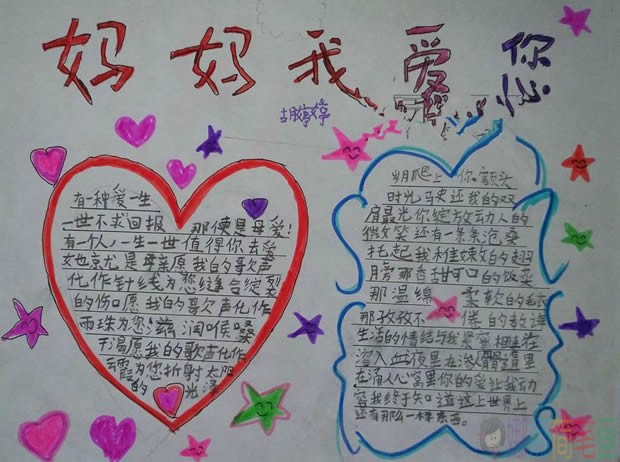 妈妈我爱您
胡婷婷
有一种爱一生
一世不求回报 那便是母爱!
有一个人一生一世值得你去爱
她也就是母亲愿我的歌声
化作针线为您缝合绽裂
的伤口愿我的歌声化作
雨珠为您滋润喉嗓
干渴愿我的歌声化作
云霞为您折射太阳
的光泽
岁月爬上你额头
时光马史还我的双
肩晨光你绽放动人的
微笑还有一条条沧桑
托起我稚嫩的翅
膀那香甜可口的饭菜
那温绵 柔软的毛衣
那孜孜不倦的教诲
生活的情结与我紧紧相连在
溶入血液里在深入骨髓里
在涌人心窝里你的爱让我动
容我终于知道这上世界上
还有那么一样东西。